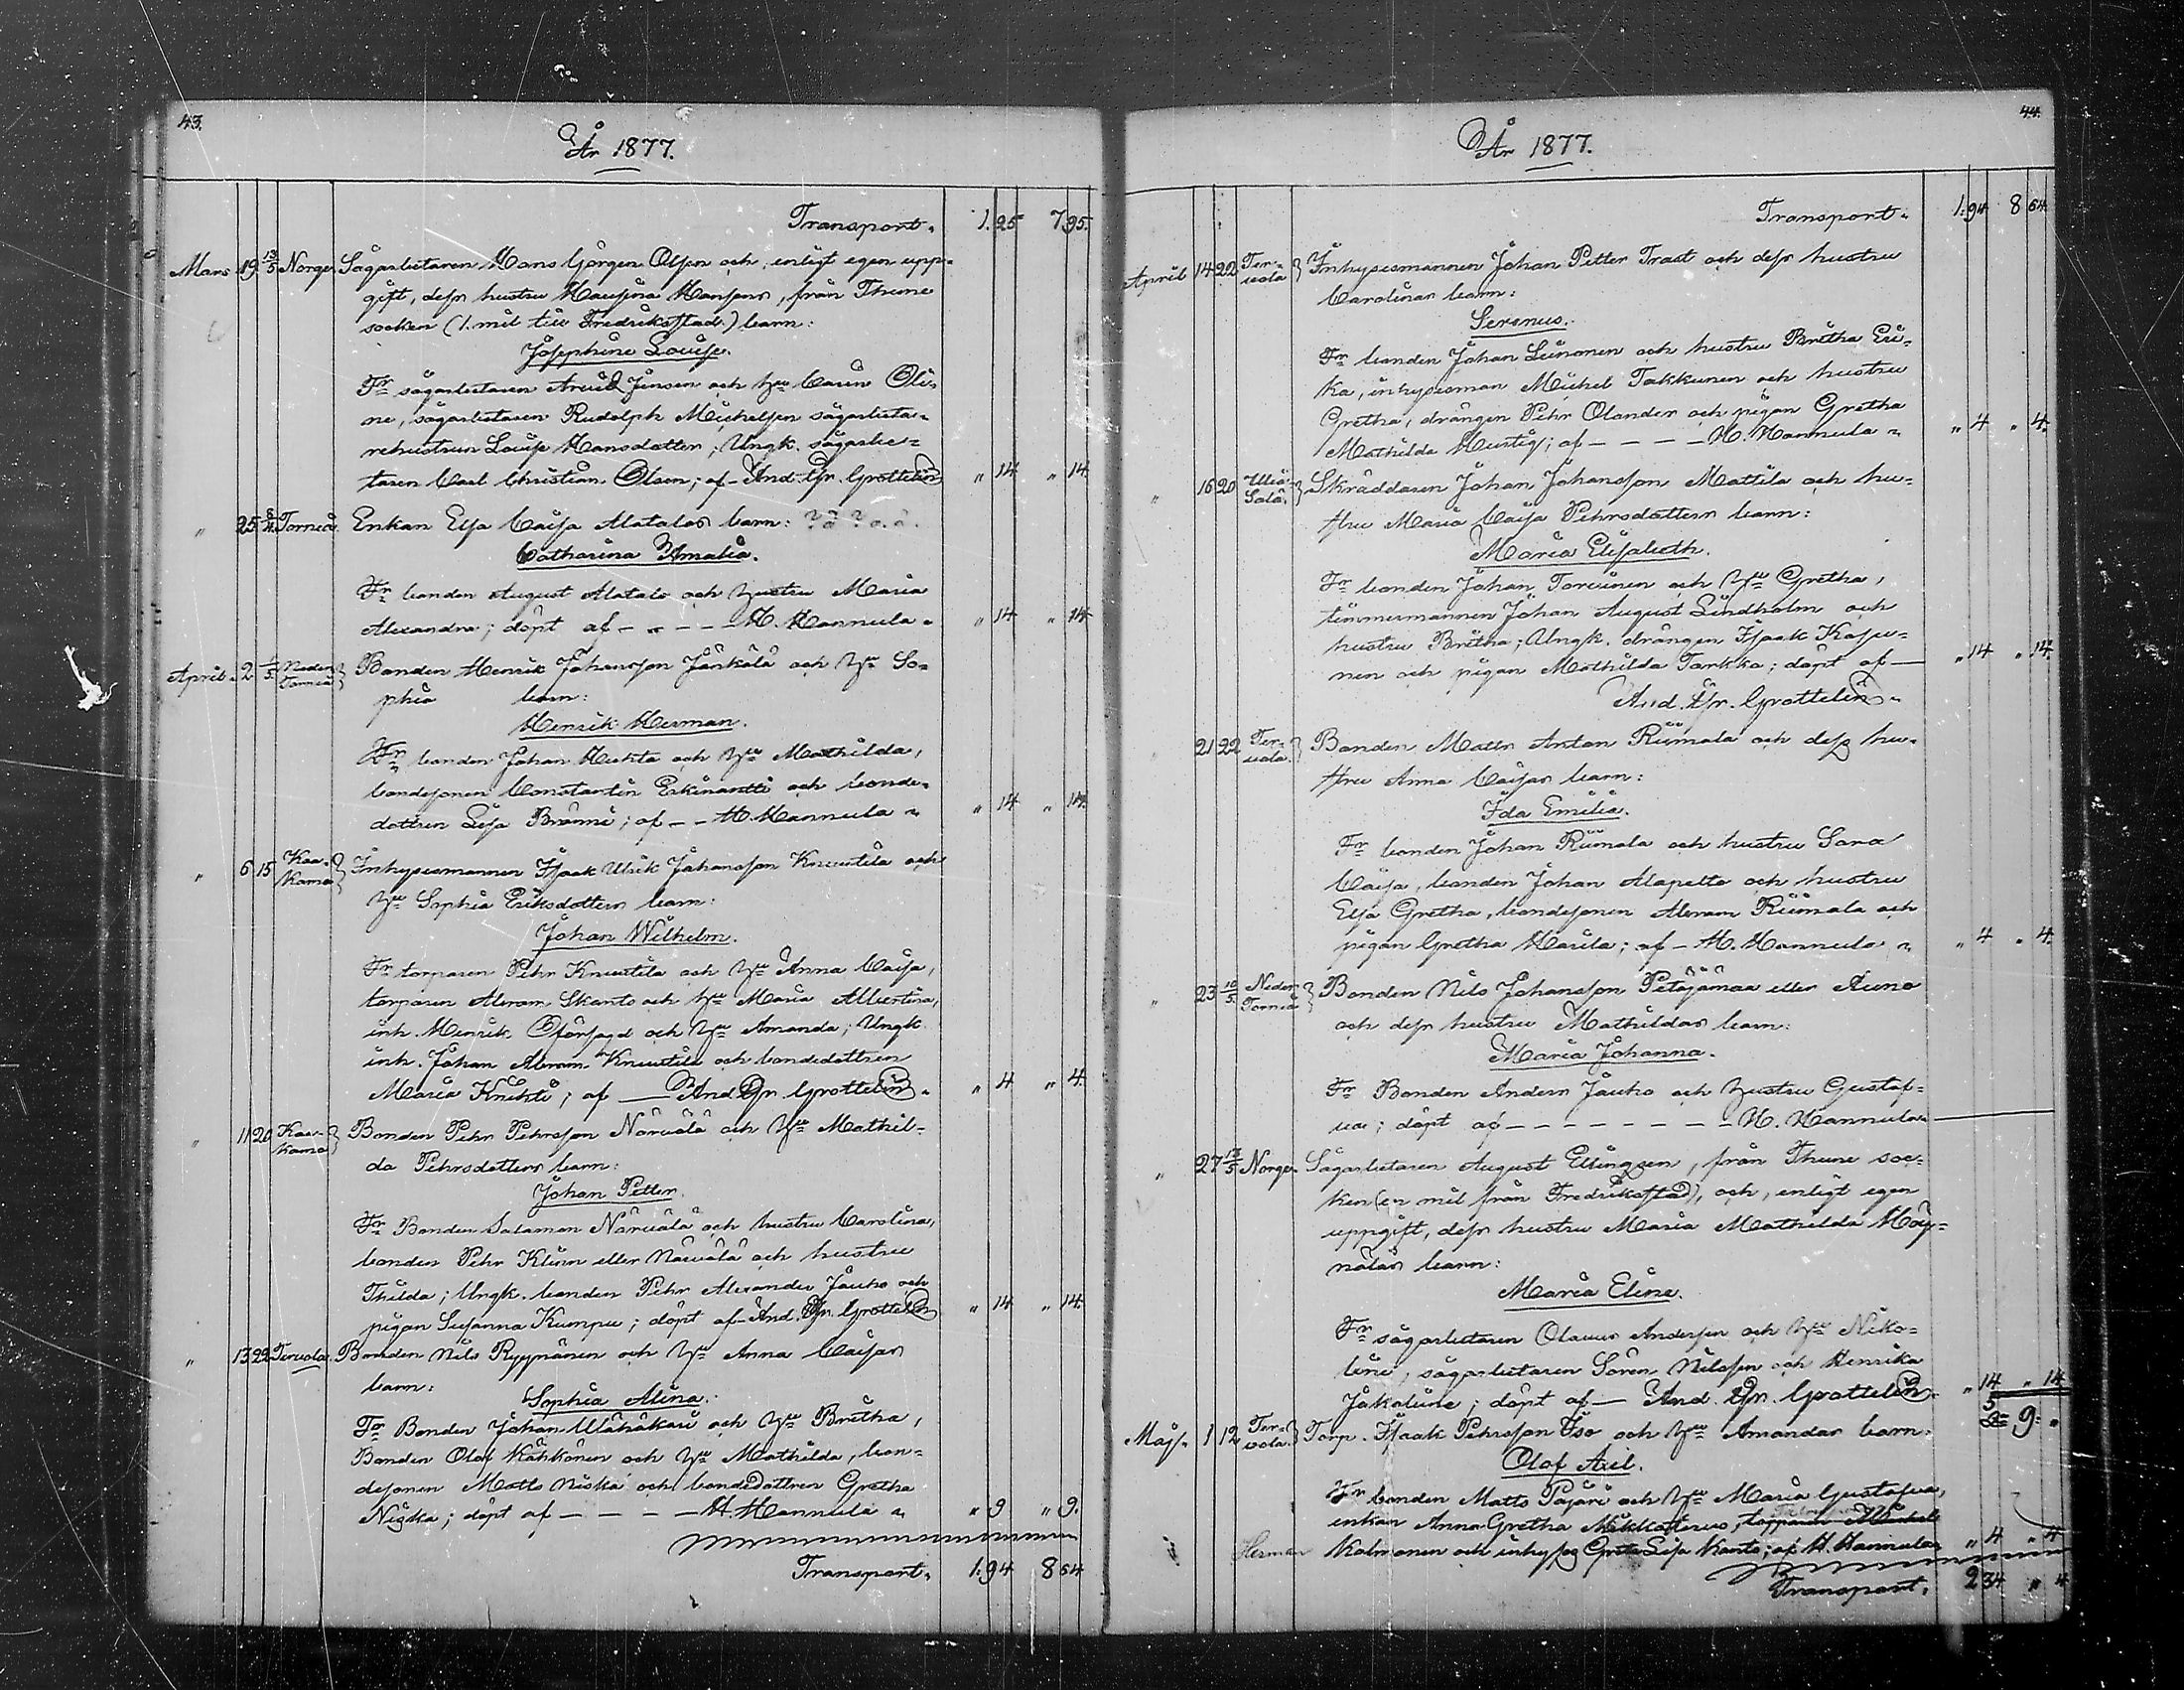 43.
År 1877.
Transport. 1. 25 7 95.
Mars 19. 13/5 Norge. Sågarbetaren Hans Görgen Olsen och, enligt egen upp-
gift, dess hustru Hansina Hansens, från Thune
socken (1. mil till Fredriksstad.) barn:
Josephine Louise.
Fr sågarbetaren Arvid Jensen och hu Carin Oli-
ne, sågarbetaren Rudolph Michelsen sågarbeta-
rehustrun Louise Hansdotter; Ungk. sågarbe-
taren Carl Christian Olsen; af - And. Gr. Grottelin " 14 " 14.
" 25 Torneå. Enkan Elsa Caisa Alatalos barn:
Catharina Amalia.
Fr bonden August Alatalo och hustru Maria
Alexandra; döpt af - " - - H. Hannula " " 14 " 14
April 2 1/5 Neder Torneå } Bonden Henrik Johansson Jänkälä och hu So-
phia barn:
Henrik Herman.
Fr bonden Johan Huhta och hu Mathilda,
bondesonen Constantin Erkinantti och bonde-
dottren Lisa Bränni; af - - H. Hannula " " 14 " 14.
" 6 15 Kaa-kama } Inhysesmannen Isaak Ulrik Johansson Knuutila och
hu Sophia Eriksdotters barn:
Johan Wilhelm.
Fr torparen Pehr Knuutila och hu Anna Caisa,
torparen Abram Skanto och hu Maria Albertina,
inh. Henrik Oförsagd och hu Amanda; Ungk.
inh. Johan Abram Knuutila och bondedottren
Maria Knihti; af — And. Gr. Grottelin " " 4 " 4.
" 11 20 Kaa-kama } Bonden Pehr Pehrsson Närvälä och hu Mathil-
da Pehrsdotters barn:
Johan Petter.
Fr Bonden Salamon Närvälä och hustru Carolina,
bonden Pehr Kliin eller Närvälä och hustru
Thilda; Ungk. bonden Pehr Alexander Jauho och
pigan Susanna Kumpu; döpt af - And. Gr. Grottelin " 14 " 14.
" 13 22 Tervola. Bonden Nils Ryynänen och hu Anna Caisas
barn: Sophia Alina.
Fr Bonden Johan Ulähäkari och hu Bretha,
Bonden Olof Käkkönen och hu Mathilda, bon-
desonen Matts Niska och bondedottren Gretha
Niska; döpt af - - - - H. Hannula " " 9 " 9.
Transport. 1. 94 8 64
44.
År 1877.
Transport. 1. 94 8 64.
April 14 22 Ter-vola } Inhysesmannen Johan Petter Trast och dess hustru
Carolinas barn:
Serenus.
Fr bonden Johan Leinonen och hustru Bretha Eri-
ka, inhysesman Michel Takkunen och hustru
Gretha, drängen Pehr Olander och pigan Gretha
Mathilda Hurtig; af - - - - H. Hannula " " 4 " 4.
" 16 20 Ylia-Salå. } Skräddaren Johan Johansson Mattila och hu-
stru Maria Caisa Pehrsdotters barn:
Maria Elisabeth.
Fr bonden Johan Torvinen och hu Gretha,
timmermannen Johan August Lindholm och
hustru Bretha; Ungk. drängen Isaak Kasu-
nen och pigan Mathilda Tarkka; döpt af — " 14 " 14.
And. Gr. Grottelin "
21 22 Ter-vola. } Bonden Matts Anton Riimala och dess hu-
stru Anna Caisas barn:
Ida Emilia.
Fr bonden Johan Riimala och hustru Sara
Caisa, bonden Johan Alapelto och hustru
Elsa Gretha, bondesonen Abram Riimala och
pigan Gretha Harila; af - H. Hannula " " 4 " 4.
" 23 10/5 Neder Torneå } Bonden Nils Johansson Petäjämaa eller Auno
och dess hustru Mathildas barn:
Maria Johanna.
Fr Bonden Anders Jauho och hustru Gustaf-
va; döpt af - - - - - - - - H. Hannula
" 27 13/5 Norge. Sågarbetaren August Ellingsen, från Thune soc-
ken (en mil från Fredriksstad), och, enligt egen
uppgift, dess hustru Maria Mathilda
barn:
Maria Eline.
Fr sågarbetaren Olavus Andersen och hu Niko-
line, sågarbetaren Sören Nilssen och Henrika
Jakoline; döpt af — And. Gr. Grottelin. " 14 " 14
Maj. 1 12 Ter-vola. } Torp. Isaak Pehrsson Iso och hu Amandas barn. 9 "
Olof Axel.
Fr bonden Matts Pajari och hu Maria Gustafva,
enkan Anna Gretha, torparen Michel
Herman Kalmanen och inhyses Greta Lisa Kanto; af H. Hannula " 4 " 4
Transport. 2 34 " 4